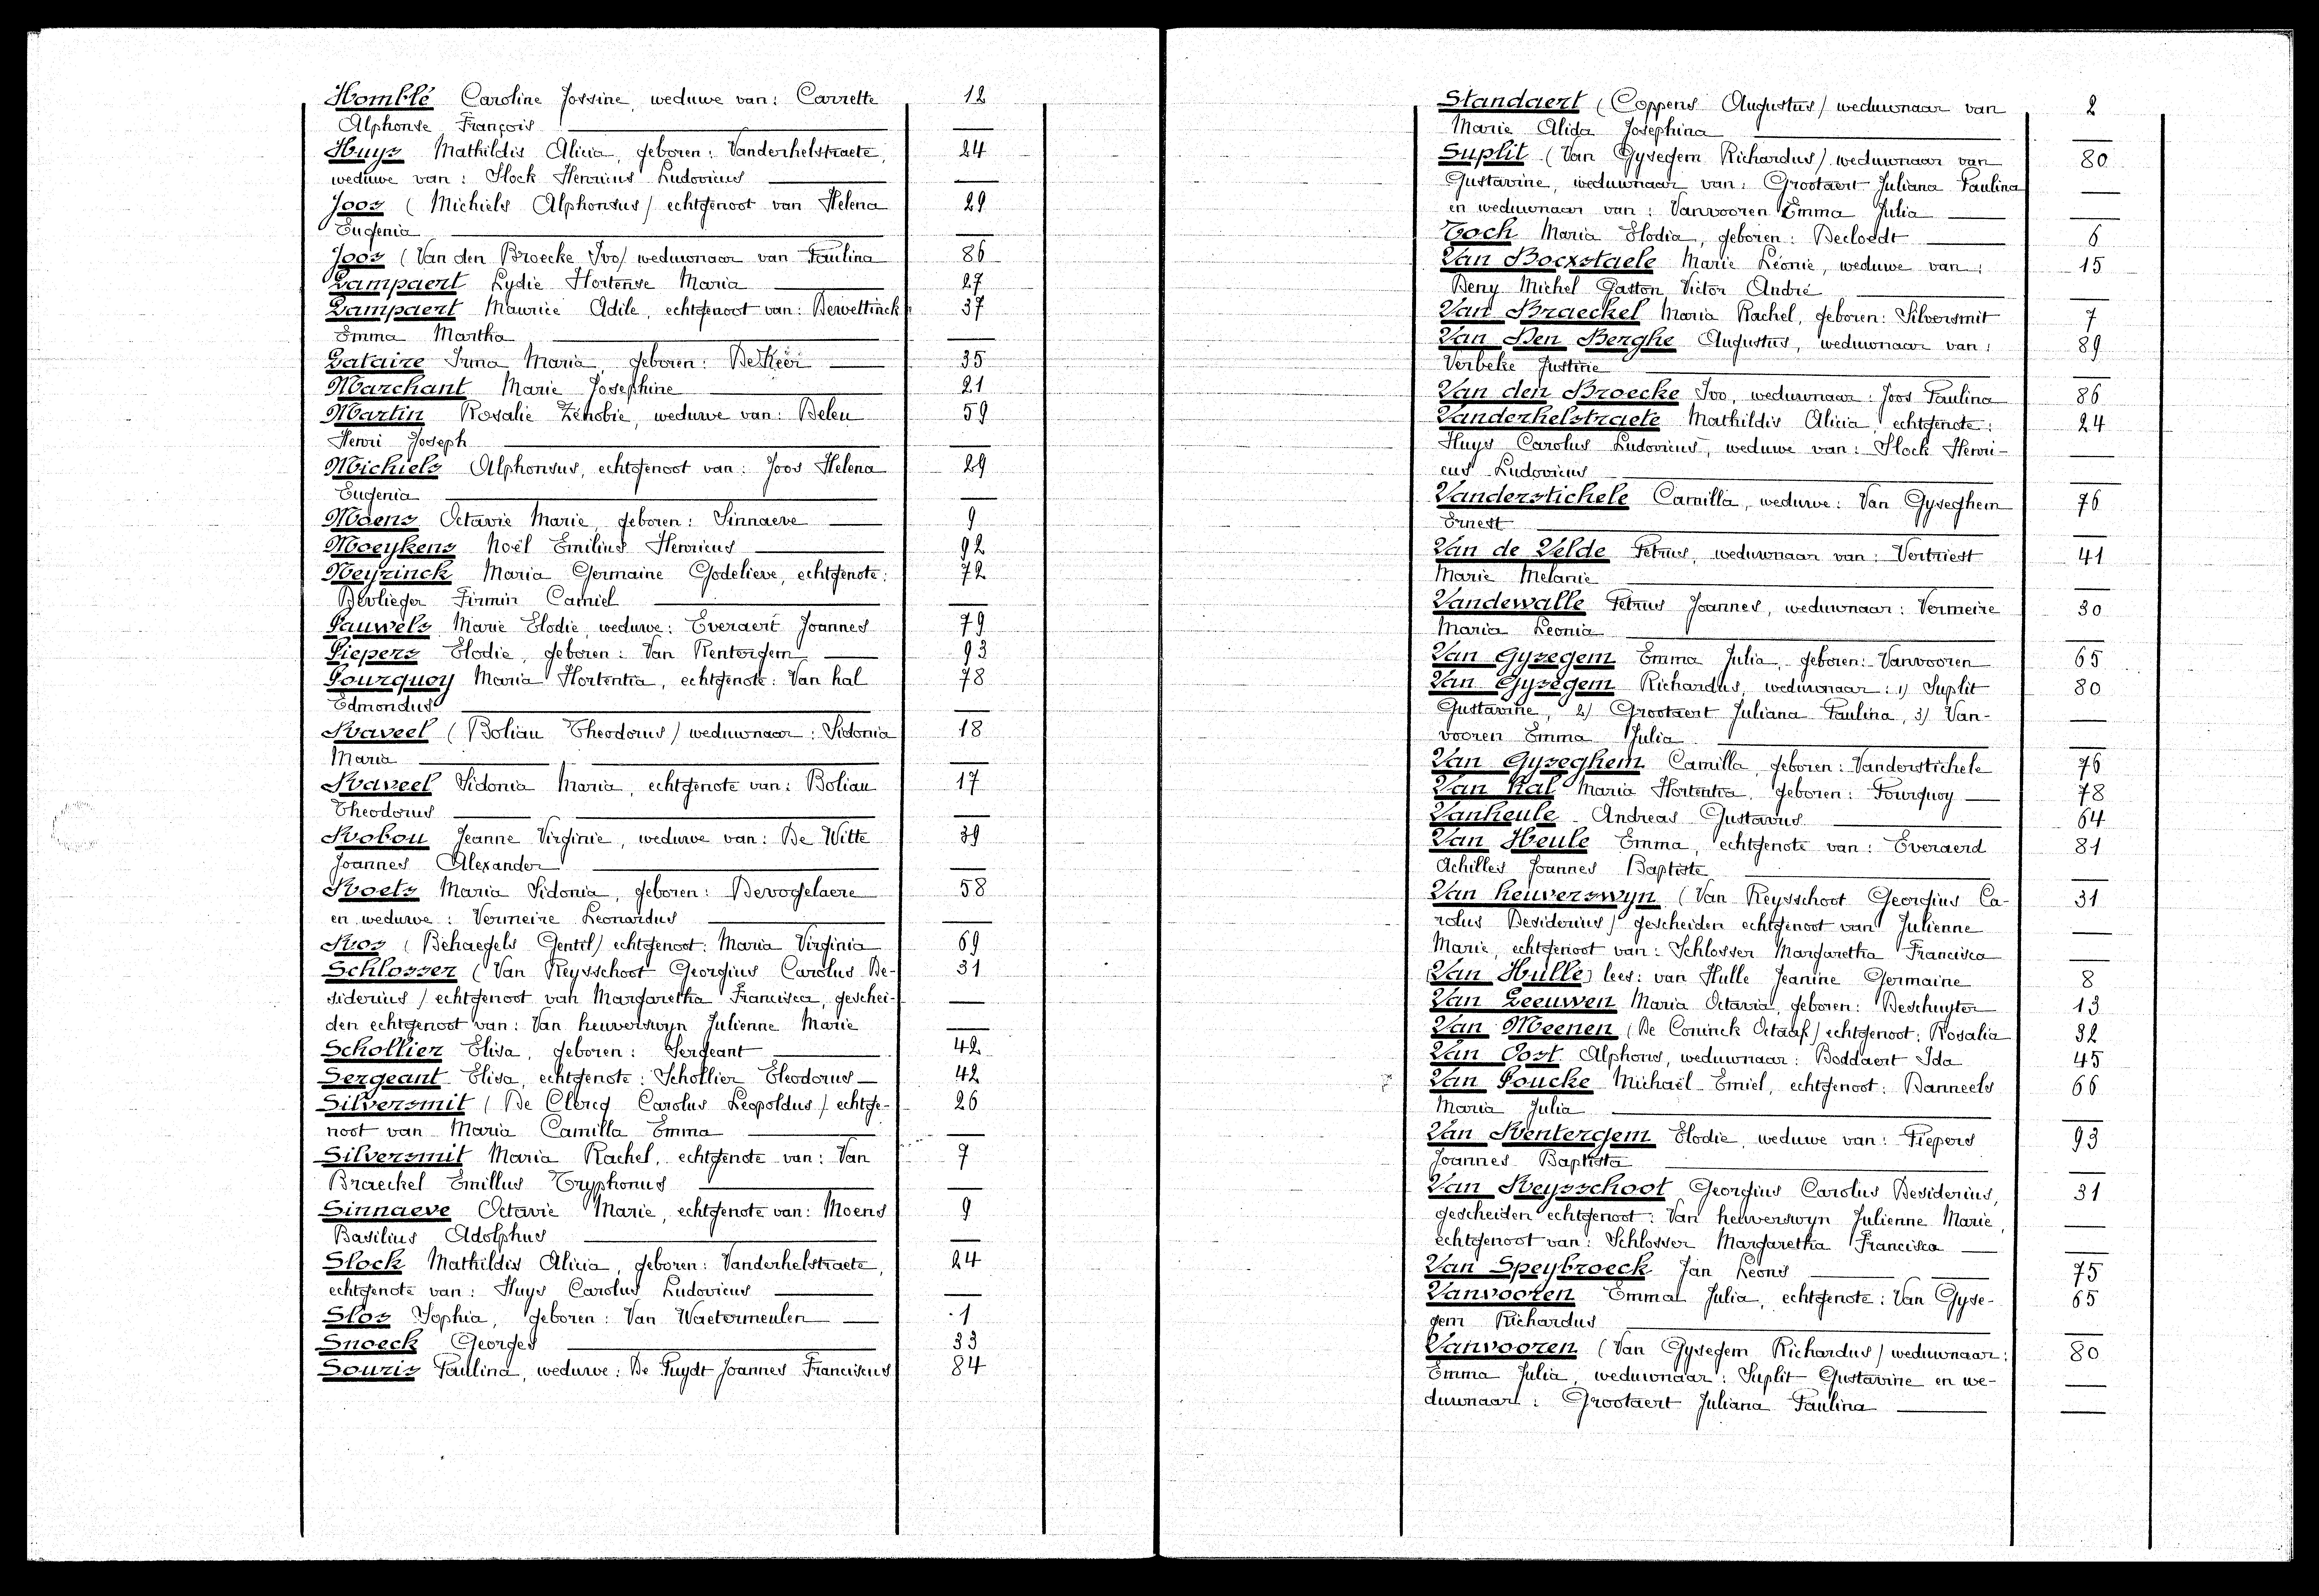 Homblé Caroline Jossine, weduwe van: Carrette 12
Alphonse François —
Huys Mathildis Alicia, geboren: Vanderhelstraete, 24
weduwe van: Slock Henricus Ludovicus —
Joos (Michiels Alphonsus) echtgenoot van Helena 29
Eugenia —
Joos (Van den Broecke Ivo) weduwnaar van Paulina 86
Lampaert Lydie Hortense Maria 27
Lampaert Maurice Adile, echtgenoot van: Dervettinck 37
Emma Martha —
Lataire Irma Maria, geboren: De Keer 35
Marchant Marie Josephine 21
Martin Rosalie Zénobie, weduwe van: Deleu 59
Henri Joseph —
Michiels Alphonsus, echtgenoot van: Joos Helena 29
Eugenia —
Moens Octavie Marie, geboren: Sinnaeve 9
Moeykens Noël Emilius Henricus 92
Neyrinck Maria Germaine Godelieve, echtgenote: 72
Devlieger Firmin Camiel —
Pauwels Marie Elodie, weduwe: Everaert Joannes 79
Piepers Elodie, geboren: Van Rentergem 93
Pourquoy Maria Hortentia, echtgenote: Van hal 78
Edmondus —
Raveel (Boliau Theodorus) weduwnaar: Sidonia 18
Maria —
Raveel Sidonia Maria, echtgenote van: Boliau 17
Theodorus —
Robou Jeanne Virginie, weduwe van: De Witte 39
Joannes Alexander —
Roets Maria Sidonia, geboren: Devogelaere 58
en weduwe: Vermeire Leonardus —
Ros (Behaegels Gentil) echtgenoot: Maria Virginia 69
Schlosser (Van Reysschoot Georgius Carolus De- 31
siderius) echtgenoot van Margaretha Francisca, geschei- —
den echtgenoot van: Van heuverswyn Julienne Marie —
Schollier Elisa, geboren: Sergeant 42
Sergeant Elisa, echtgenote: Schollier Theodorus 42
Silversmit (De Clercq Carolus Leopoldus) echtge- 26
noot van Maria Camilla Emma —
Silversmit Maria Rachel, echtgenote van: Van 7
Braeckel Emillus Tryphonus —
Sinnaeve Octavie Marie, echtgenote van: Moens 9
Basilius Adolphus —
Slock Mathildis Alicia, geboren: Vanderhelstraete, 24
echtgenote van: Huys Carolus Ludovicus —
Slos Sophia, geboren: Van Waetermeulen 1
Snoeck Georges 33
Souris Paulina, weduwe: De Puydt Joannes Franciscus 84
Standaert (Coppens Augustus) weduwnaar van 2
Marie Alida Josephina —
Suplit (Van Gysegem Richardus) weduwnaar van 80
Gustavine, weduwnaar van: Grootaert Juliana Paulina —
en weduwnaar van: Vanvooren Emma Julia —
Toch Maria Elodia, geboren: Decloedt 6
Van Bocxstaele Marie Léonie, weduwe van: 15
Deny Michel Gaston Victor André —
Van Braeckel Maria Rachel, geboren: Silversmit 7
Van Den Berghe Augustus, weduwnaar van: 89
Verbeke Justine —
Van den Broecke Ivo, weduwnaar: Joos Paulina 86
Vanderhelstraete Mathildis Alicia, echtgenote: 24
Huys Carolus Ludovicus, weduwe van: Slock Henri- —
cus Ludovicus —
Vanderstichele Camilla, weduwe: Van Gyseghem 76
Ernest —
Van de Velde Petrus, weduwnaar van: Vertriest 41
Marie Melanie —
Vandewalle Petrus Joannes, weduwnaar: Vermeire 30
Maria Leonia —
Van Gysegem Emma Julia, geboren: Vanvooren 65
Van Gysegem Richardus, weduwnaar: 1) Suplit 80
Gustavine, 2) Grootaert Juliana Paulina, 3) Van- —
vooren Emma Julia —
Van Gyseghem Camilla, geboren: Vanderstichele 76
Van Hal Maria Hortentia, geboren: Pourquoy 78
Vanheule Andreas Gustavus 64
Van Heule Emma, echtgenote van: Everaerd 81
Achilles Joannes Baptiste —
Van heuverswyn (Van Reysschoot Georgius Ca- 31
rolus Desiderius) gescheiden echtgenoot van Julienne —
Marie, echtgenoot van: Schlosser Margaretha Francisca —
(Van Hulle) lees: van Hulle Jeanine Germaine 8
Van Leeuwen Maria Octavia, geboren: Deschuyter 13
Van Meenen (De Coninck Octaaf) echtgenoot: Rosalia 32
Van Oost Alphons, weduwnaar: Boddaert Ida 45
Van Poucke Michaël Emiel, echtgenoot: Danneels 66
Maria Julia —
Van Rentergem Elodie, weduwe van: Piepers 93
Joannes Baptista —
Van Reysschoot Georgius Carolus Desiderius, 31
gescheiden echtgenoot: Van heuverswyn Julienne Marie, —
echtgenoot van: Schlosser Margaretha Francisca —
Van Speybroeck Jan Leons 75
Vanvooren Emma Julia, echtgenote: Van Gyse- 65
gem Richardus —
Vanvooren (Van Gysegem Richardus) weduwnaar: 80
Emma Julia, weduwnaar: Suplit Gustavine en we- —
duwnaar: Grootaert Juliana Paulina —